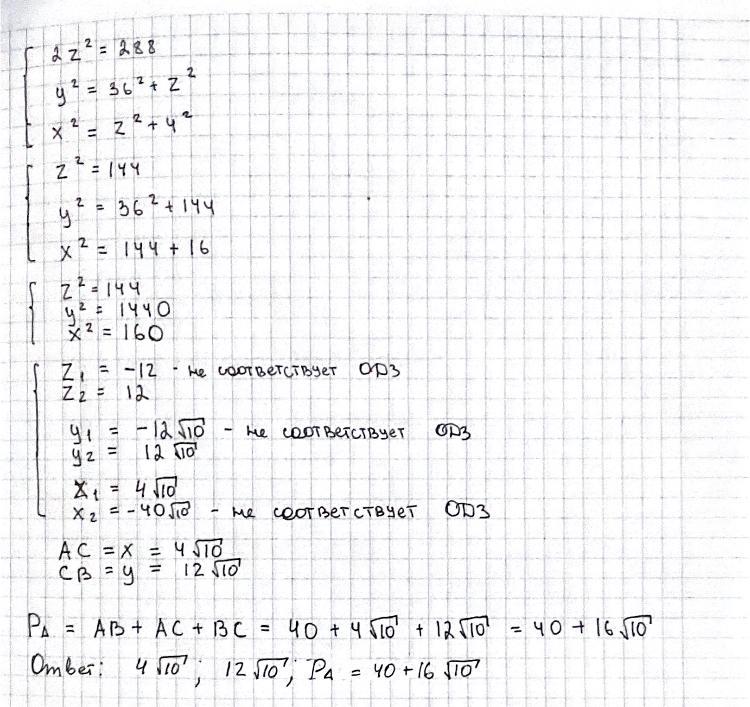 2z² = 288
y² = 36² + z²
x² = z² + 4²
z² = 144
y² = 36² + 144
x² = 144 + 16
z² = 144
y² = 1440
x² = 160
z₁ = -12 - не соответствует ОДЗ
z₂ = 12
y₁ = -12√10 - не соответствует ОДЗ
y₂ = 12√10
x₁ = 4√10
x₂ = -40√10 - не соответствует ОДЗ
AC = x = 4√10
CB = y = 12√10
P∆ = AB + AC + BC = 40 + 4√10 + 12√10 = 40 + 16√10
Ответ: 4√10; 12√10; P∆ = 40 + 16√10